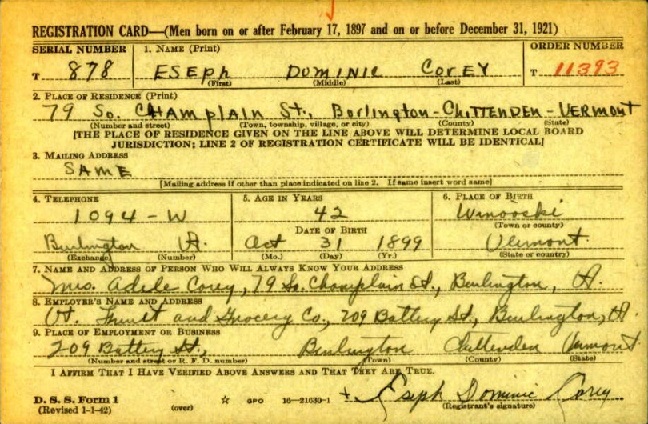 REGISTRATION CARD—(Men born on or after February 17, 1897 and on or before December 31, 1921)
SERIAL NUMBER 1. NAME (Print) ORDER NUMBER
T 878 ESEPH DOMINIC COREY T 11393
(First) (Middle) (Last)
2. PLACE OF RESIDENCE (Print)
79 So. CHAMPLAIN St., Borlington-CHITTENDEN-VERMONT
(Number and street) (Town, township, village, or city) (County) (State)
[THE PLACE OF RESIDENCE GIVEN ON THE LINE ABOVE WILL DETERMINE LOCAL BOARD
JURISDICTION; LINE 2 OF REGISTRATION CERTIFICATE WILL BE IDENTICAL]
3. MAILING ADDRESS
SAME
[Mailing address if other than place indicated on line 2. If same insert word same]
4. TELEPHONE 5. AGE IN YEARS 6. PLACE OF BIRTH
1094-W 42 Winooski
DATE OF BIRTH (Town or county)
Burlington Vt. Oct 31 1899 Vermont
(Exchange) (Number) (Mo.) (Day) (Yr.) (State or country)
7. NAME AND ADDRESS OF PERSON WHO WILL ALWAYS KNOW YOUR ADDRESS
Mrs. Adele Corey, 79 So. Champlain St., Burlington, Vt.
8. EMPLOYER'S NAME AND ADDRESS
Vt. Fruit and Grocery Co., 209 Battery St., Burlington, Vt.
9. PLACE OF EMPLOYMENT OR BUSINESS
209 Battery St., Burlington Chittenden Vermont
(Number and street or R. F. D. number) (Town) (County) (State)
I AFFIRM THAT I HAVE VERIFIED ABOVE ANSWERS AND THAT THEY ARE TRUE.
D. S. S. Form 1 Eseph Dominic Corey
(Revised 1-1-42) (over) ☆ GPO 16—21630-1 (Registrant's signature)